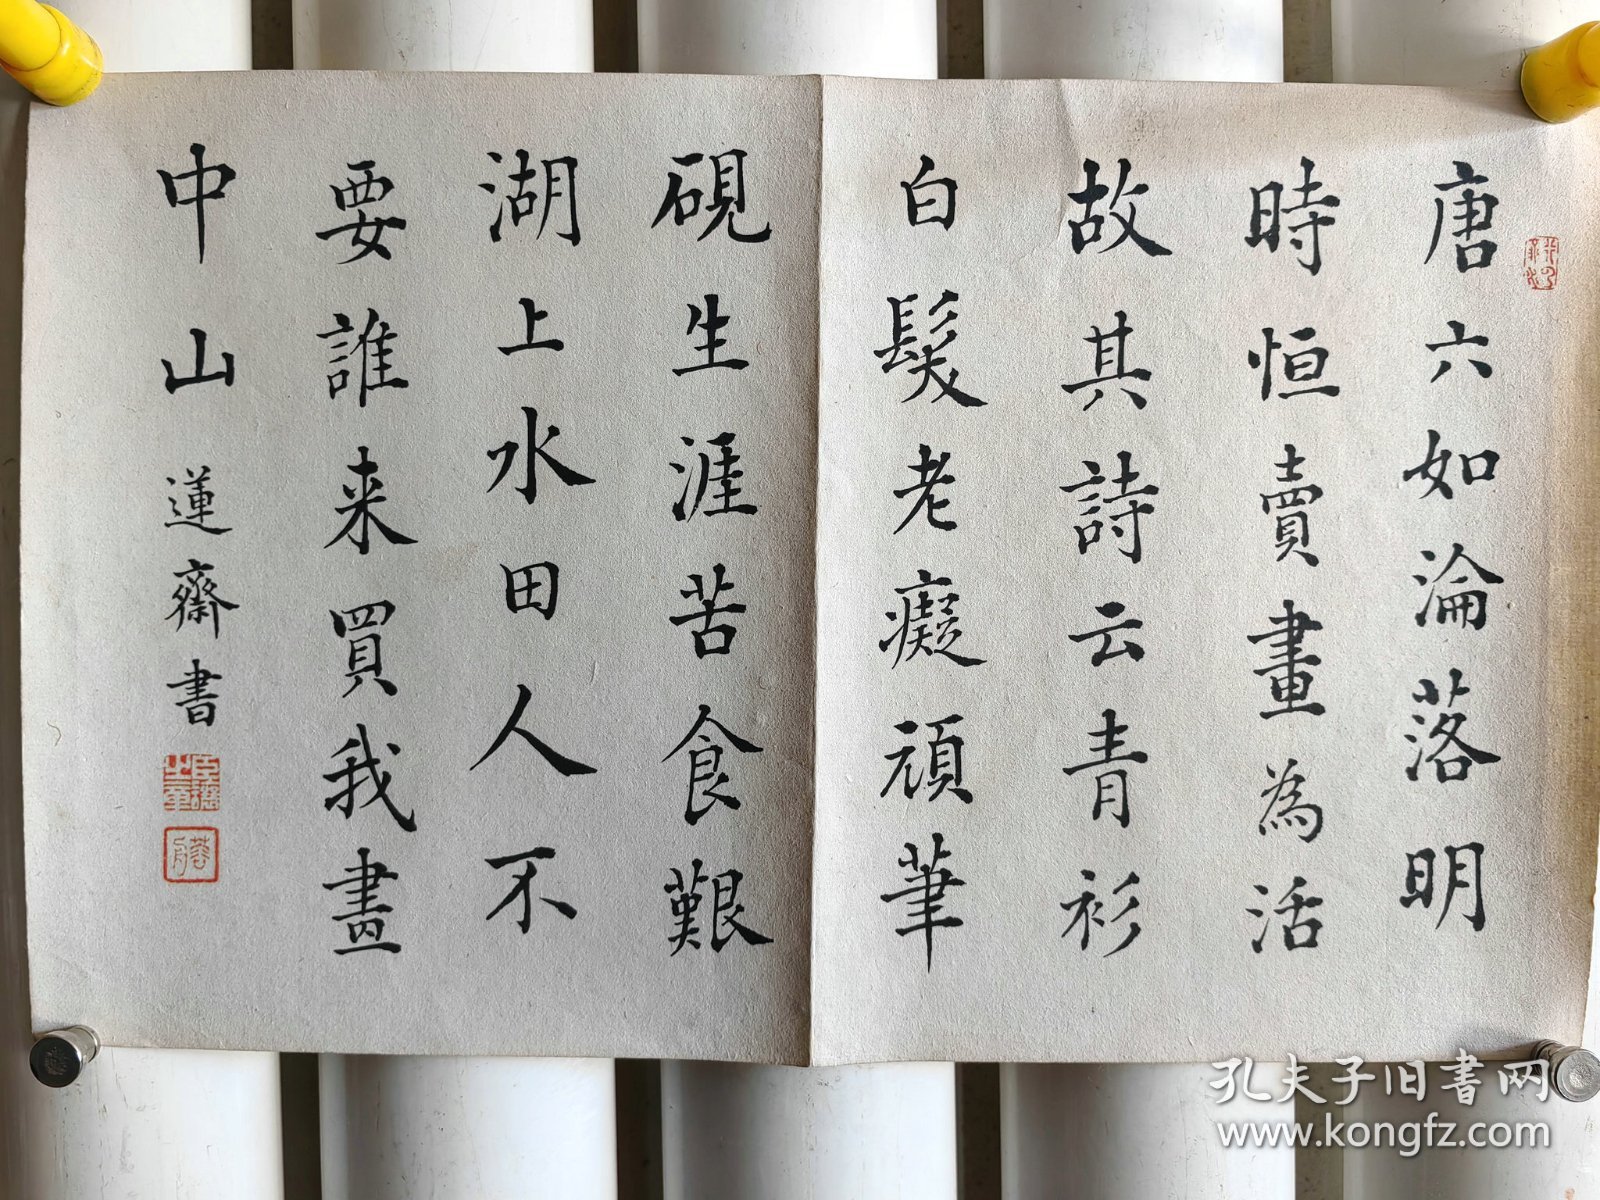 唐六如淪落明
時恒賣畫為活
故其詩云青衫
白髮老癡頑筆
硯生涯苦食艱
湖上水田人不
要誰来買我畫
中山蓮齋書
孔夫子旧書网
www.kongfz.com